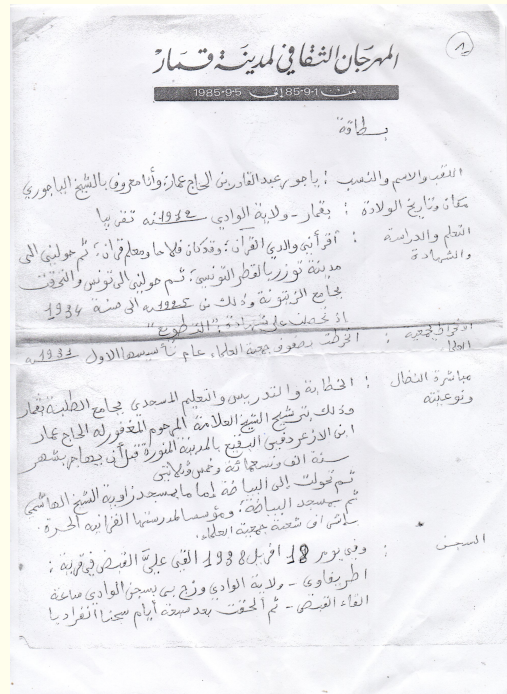 1
المهرجان الثقافي لمدينة قمار
من 1-9-85 إلى 5-9-1985
بطاقة
اللقب والاسم والنسب : ياجور عبد القادر بن الحاج عمارة وأنا معروف بالشيخ الياجوري
مكان وتاريخ الولادة : بقمار - ولاية الوادي 1912 تقريبا
التعلم والدراسة : أقرأني والدي القرآن، وقد كان فلاحا ومعلم قرآن، ثم حولني الى
والشهادة مدينة توزر بالقطر التونسي، ثم حولني الى تونس والتحقت
بجامع الزيتونة وذلك من سنة الى سنة 1934
اذ تحصلت على شهادة "التطويع"
العلماء : انخرطت بصفوف جمعية العلماء عام تأسيسها الاول 1931
مباشرة النضال : الخطابة والتدريس والتعليم المسجدي بجامع الطلبة بقمار
ونوعيته وذلك بترشيح الشيخ العلامة المرحوم المغفور له الحاج عمار
ابن الازعر دفين البقيع بالمدينة المنورة قبل أن يهاجر بشهر
سنة الف وتسعمائة وخمس وثلاثين
ثم تحولت إلى البياضة إماما بمسجد زاوية الشيخ الهاشمي
ثم بمسجد البياضة، ومؤسسا لمدرستها القرآنية الحرة
شعبة جمعية العلماء.
السجن : وفي يوم 18 افريل 1938 القي علي القبض في قرية :
اطريفاوي - ولاية الوادي وزج بي بسجن الوادي ساعة
القاء القبض - ثم الحقت بعد سبعة أيام سجنا انفراديا